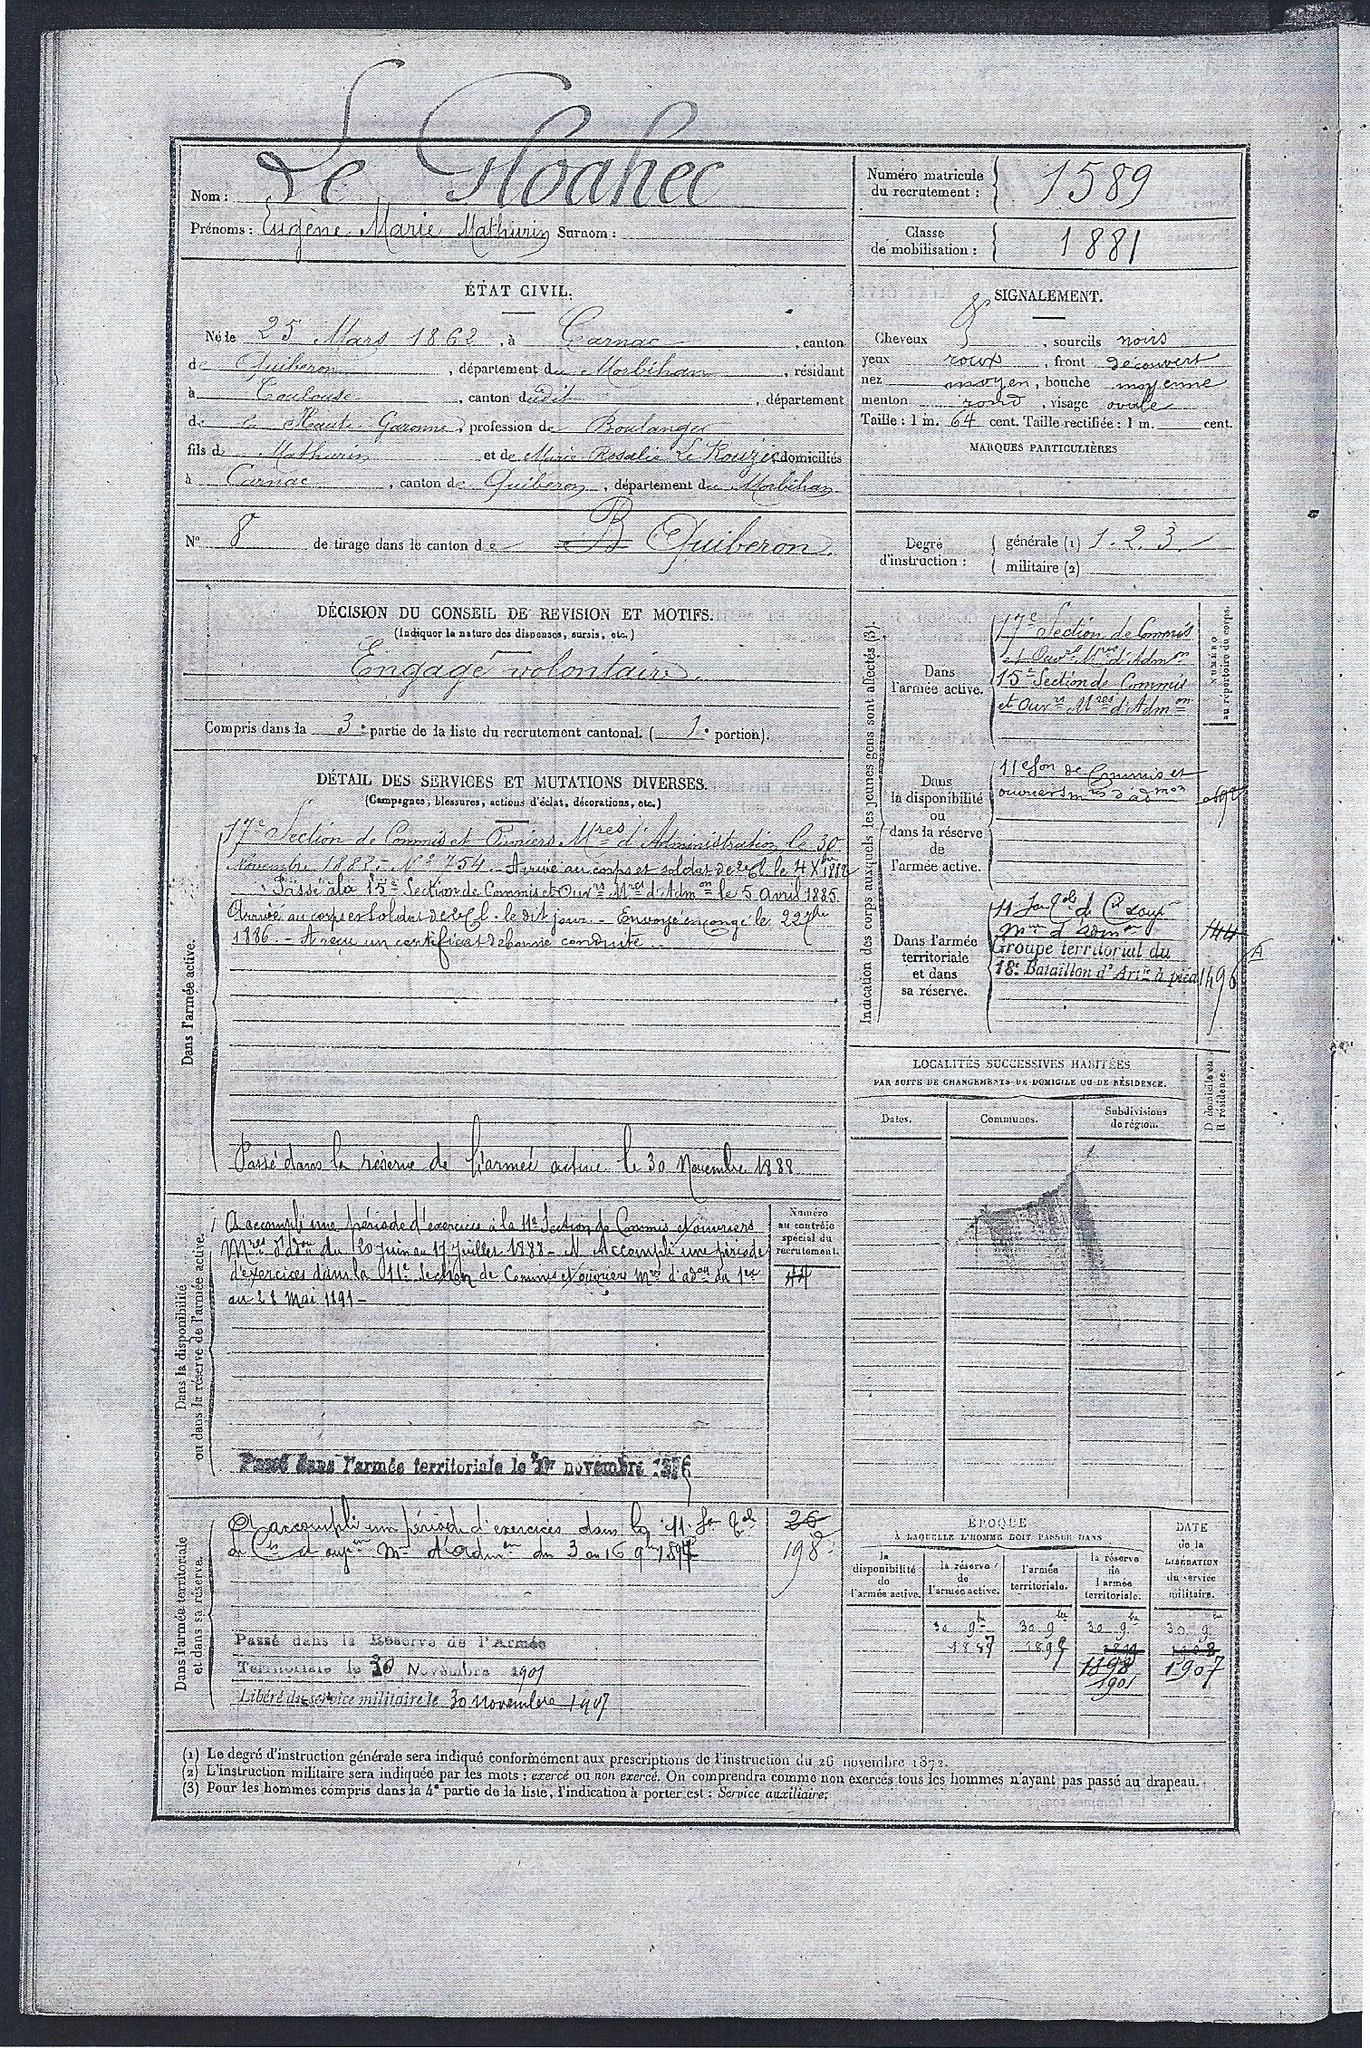 Nom : Le Gloahec
Prénoms : Eugène Marie Mathurin Surnom :
Numéro matricule du recrutement : 1589
Classe de mobilisation : 1881
ÉTAT CIVIL.
Né le 25 Mars 1862, à Carnac, canton
de Quiberon, département du Morbihan, résidant
à Toulouse, canton dudit, département
de la Haute Garonne, profession de Boulanger
fils de Mathurin et de Marie Rosalie Le Rouzic, domiciliés
à Carnac, canton de Quiberon, département du Morbihan
N° 8 de tirage dans le canton de B Quiberon.
SIGNALEMENT.
Cheveux, sourcils noirs
yeux roux, front découvert
nez moyen, bouche moyenne
menton rond, visage ovale
Taille : 1 m. 64 cent. Taille rectifiée : 1 m. cent.
MARQUES PARTICULIÈRES
Degré d'instruction :
générale (1) 1.2.3.
militaire (2)
DÉCISION DU CONSEIL DE REVISION ET MOTIFS.
(Indiquer la nature des dispenses, sursis, etc.)
Engagé volontaire.
Compris dans la 3e partie de la liste du recrutement cantonal. (1e portion).
DÉTAIL DES SERVICES ET MUTATIONS DIVERSES.
(Campagnes, blessures, actions d'éclat, décorations, etc.)
Dans l'armée active.
17e Section de Commis et Ouvriers Mres d'Administration le 30
Novembre 1882 - No 2754 - Arrivé au corps et soldat de 2e Cl. le 4 Xbre 1882
Passé à la 15e Section de Commis et Ouvrs Mres d'Admon le 5 avril 1885.
Arrivé au corps et soldat de 2e Cl. le dit jour. - Envoyé en congé le 22 7bre
1886. - A reçu un certificat de bonne conduite.
Passé dans la réserve de l'armée active le 30 Novembre 1888
Dans la disponibilité
ou dans la réserve de l'armée active.
A accompli une période d'exercices à la 11e Section de Commis et ouvriers
Mres d'adon du 20 juin au 17 juillet 1888 - A Accompli une période
d'exercices dans la 11e Section de Commis et ouvriers Mres d'adon du 1er
au 28 Mai 1891 -
Numéro
au contrôle
spécial du
recrutement.
44
Passé dans l'armée territoriale le novembre
Dans l'armée territoriale
et dans sa réserve.
A accompli une période d'exercices dans la 11e Son
de Cis et Mre d'admon du 3 au 16 9bre
26
198
Passé dans la Réserve de l'Armée
Territoriale le 30 Novembre 1901
Libéré du service militaire le 30 Novembre 1907
Indication des corps auxquels les jeunes gens sont affectés (3).
NUMÉRO
au répertoire du corps.
Dans
l'armée active.
17e Section de Commis
et Ouvrs Mres d'Admon
15e Section de Commis
et Ouvrs Mres d'Admon
Dans
la disponibilité
ou
dans la réserve
de
l'armée active.
11e Son de Commis et
ouvriers mres d'admon
Dans l'armée
territoriale
et dans
sa réserve.
Mre d'Admon
144
Groupe territorial du
18e Bataillon d'Artie à pied
1496
LOCALITÉS SUCCESSIVES HABITÉES
PAR SUITE DE CHANGEMENTS DE DOMICILE OU DE RÉSIDENCE.
Dates.
Communes.
Subdivisions
de région.
D domicile ou
R résidence.
ÉPOQUE
À LAQUELLE L'HOMME DOIT PASSER DANS
DATE
de la
LIBÉRATION
du service
militaire.
la
disponibilité
de
l'armée active.
la réserve
de
l'armée active.
l'armée
territoriale.
la réserve
de
l'armée
territoriale.
30 9bre 30 9bre 30 9bre 30 9bre
1887
1901
1907
(1) Le degré d'instruction générale sera indiqué conformément aux prescriptions de l'instruction du 26 novembre 1872.
(2) L'instruction militaire sera indiquée par les mots : exercé ou non exercé. On comprendra comme non exercés tous les hommes n'ayant pas passé au drapeau.
(3) Pour les hommes compris dans la 4e partie de la liste, l'indication à porter est : Service auxiliaire.